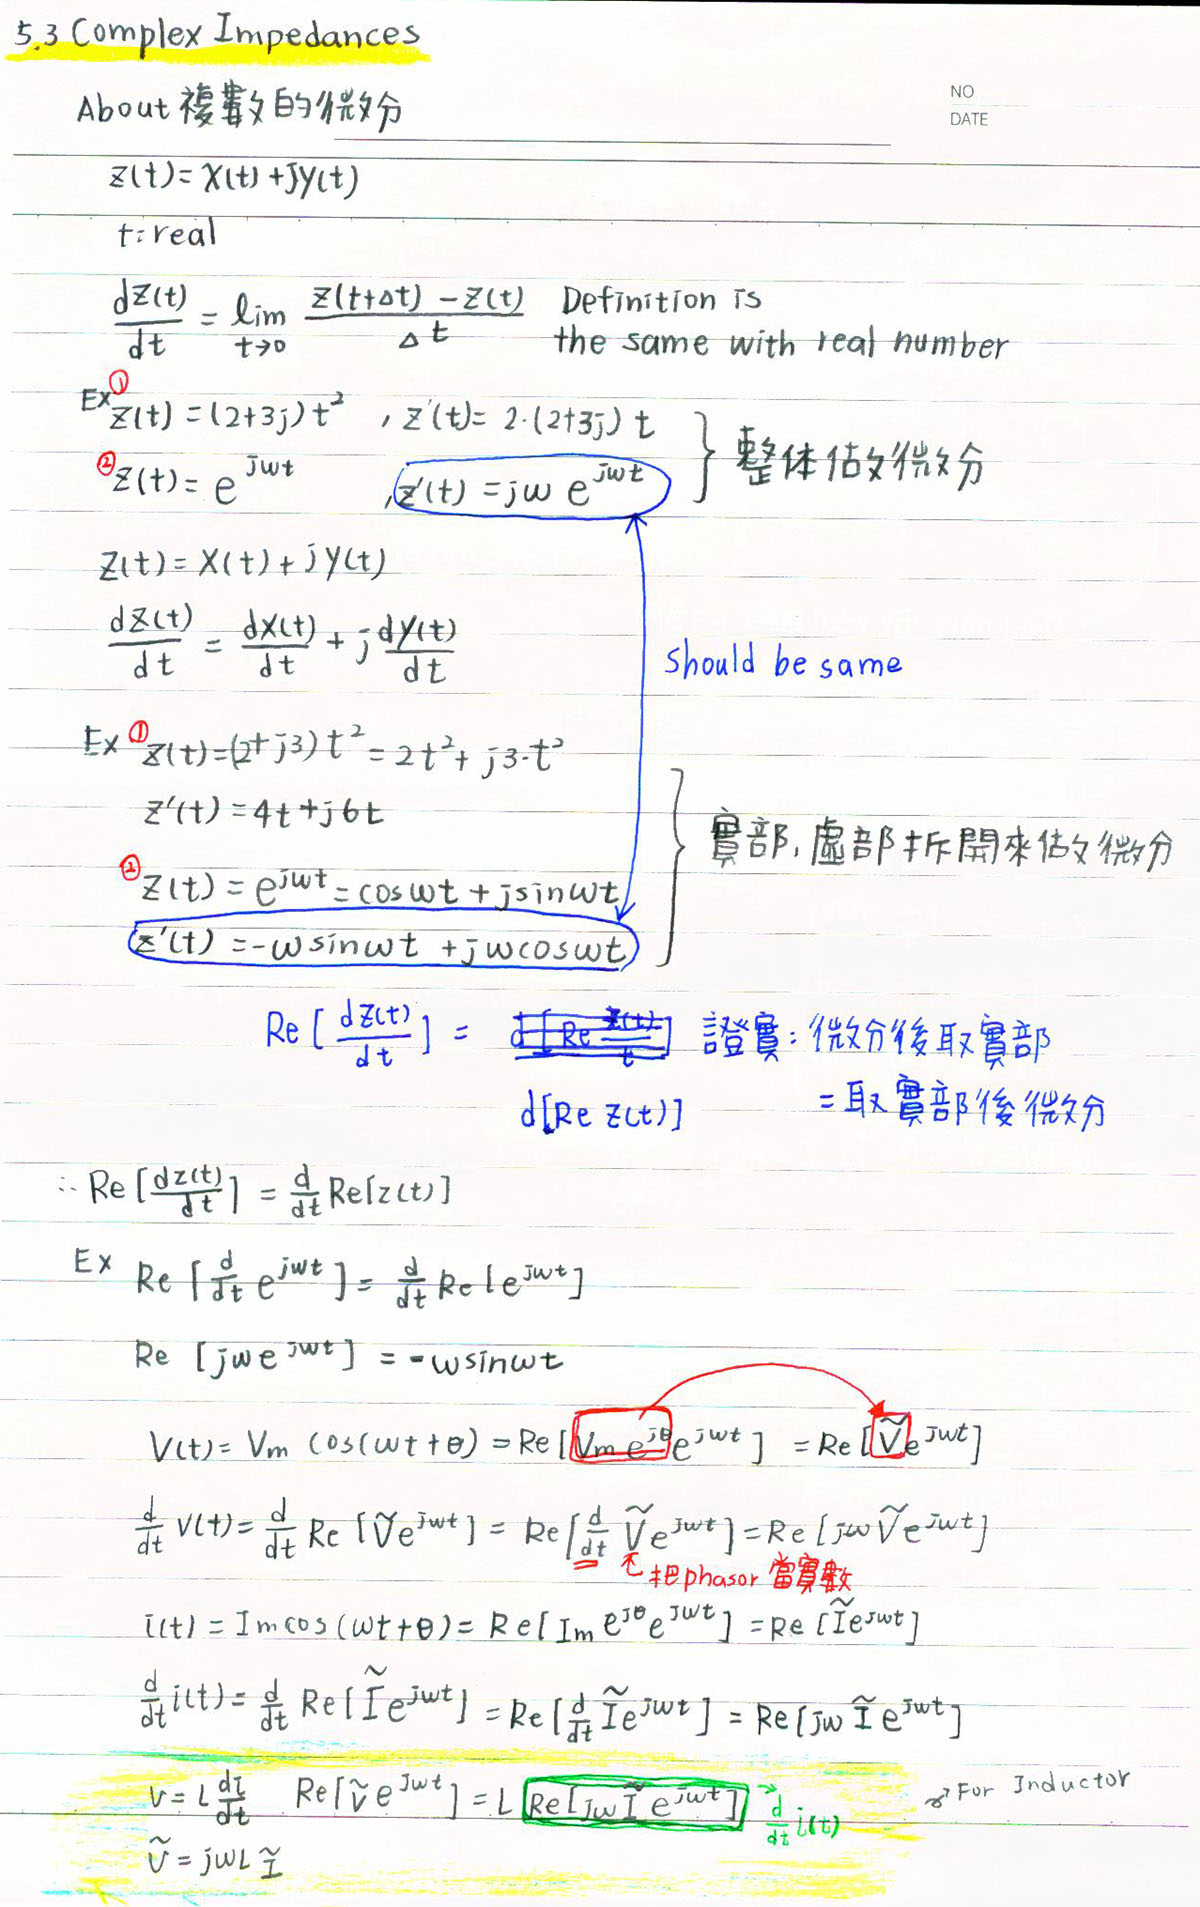 5.3 Complex Impedances
About 複數的微分
NO
DATE
z(t)=X(t)+jY(t)
t:real
dz(t)/dt = lim t→0 z(t+Δt)-z(t)/Δt Definition is
the same with real number
Ex ① z(t)=(2+3j)t² , z'(t)=2·(2+3j)t
② z(t)=e^jwt , z'(t)=jw e^jwt } 整体做微分
z(t)=X(t)+jY(t)
dz(t)/dt = dX(t)/dt + j dY(t)/dt
should be same
Ex ① z(t)=(2+j3)t²=2t²+j3·t²
z'(t)=4t+j6t
} 實部,虛部拆開來做微分
② z(t)=e^jwt=coswt+jsinwt
z'(t)=-wsinwt+jwcoswt
Re[dz(t)/dt] = d[Re z(t)/t] 證實:微分後取實部
d[Re z(t)] =取實部後微分
∴ Re[dz(t)/dt] = d/dt Re[z(t)]
Ex Re[d/dt e^jwt] = d/dt Re[e^jwt]
Re [jwe^jwt] = -wsinwt
V(t)=Vm cos(wt+θ)=Re[Vm e^jθ e^jwt] =Re[Ṽe^jwt]
d/dt V(t)=d/dt Re[Ṽe^jwt] = Re[d/dt Ṽe^jwt]=Re[jwṼe^jwt]
↖把phasor 當實數
i(t)=Imcos(wt+θ)=Re[Im e^jθ e^jwt] =Re[Ĩe^jwt]
d/dt i(t)=d/dt Re[Ĩe^jwt] =Re[d/dt Ĩe^jwt] = Re[jwĨe^jwt]
v=L di/dt Re[ṽe^jwt]=L Re[jwĨe^jwt] → d/dt i(t) → For Inductor
ṽ=jwLĨ